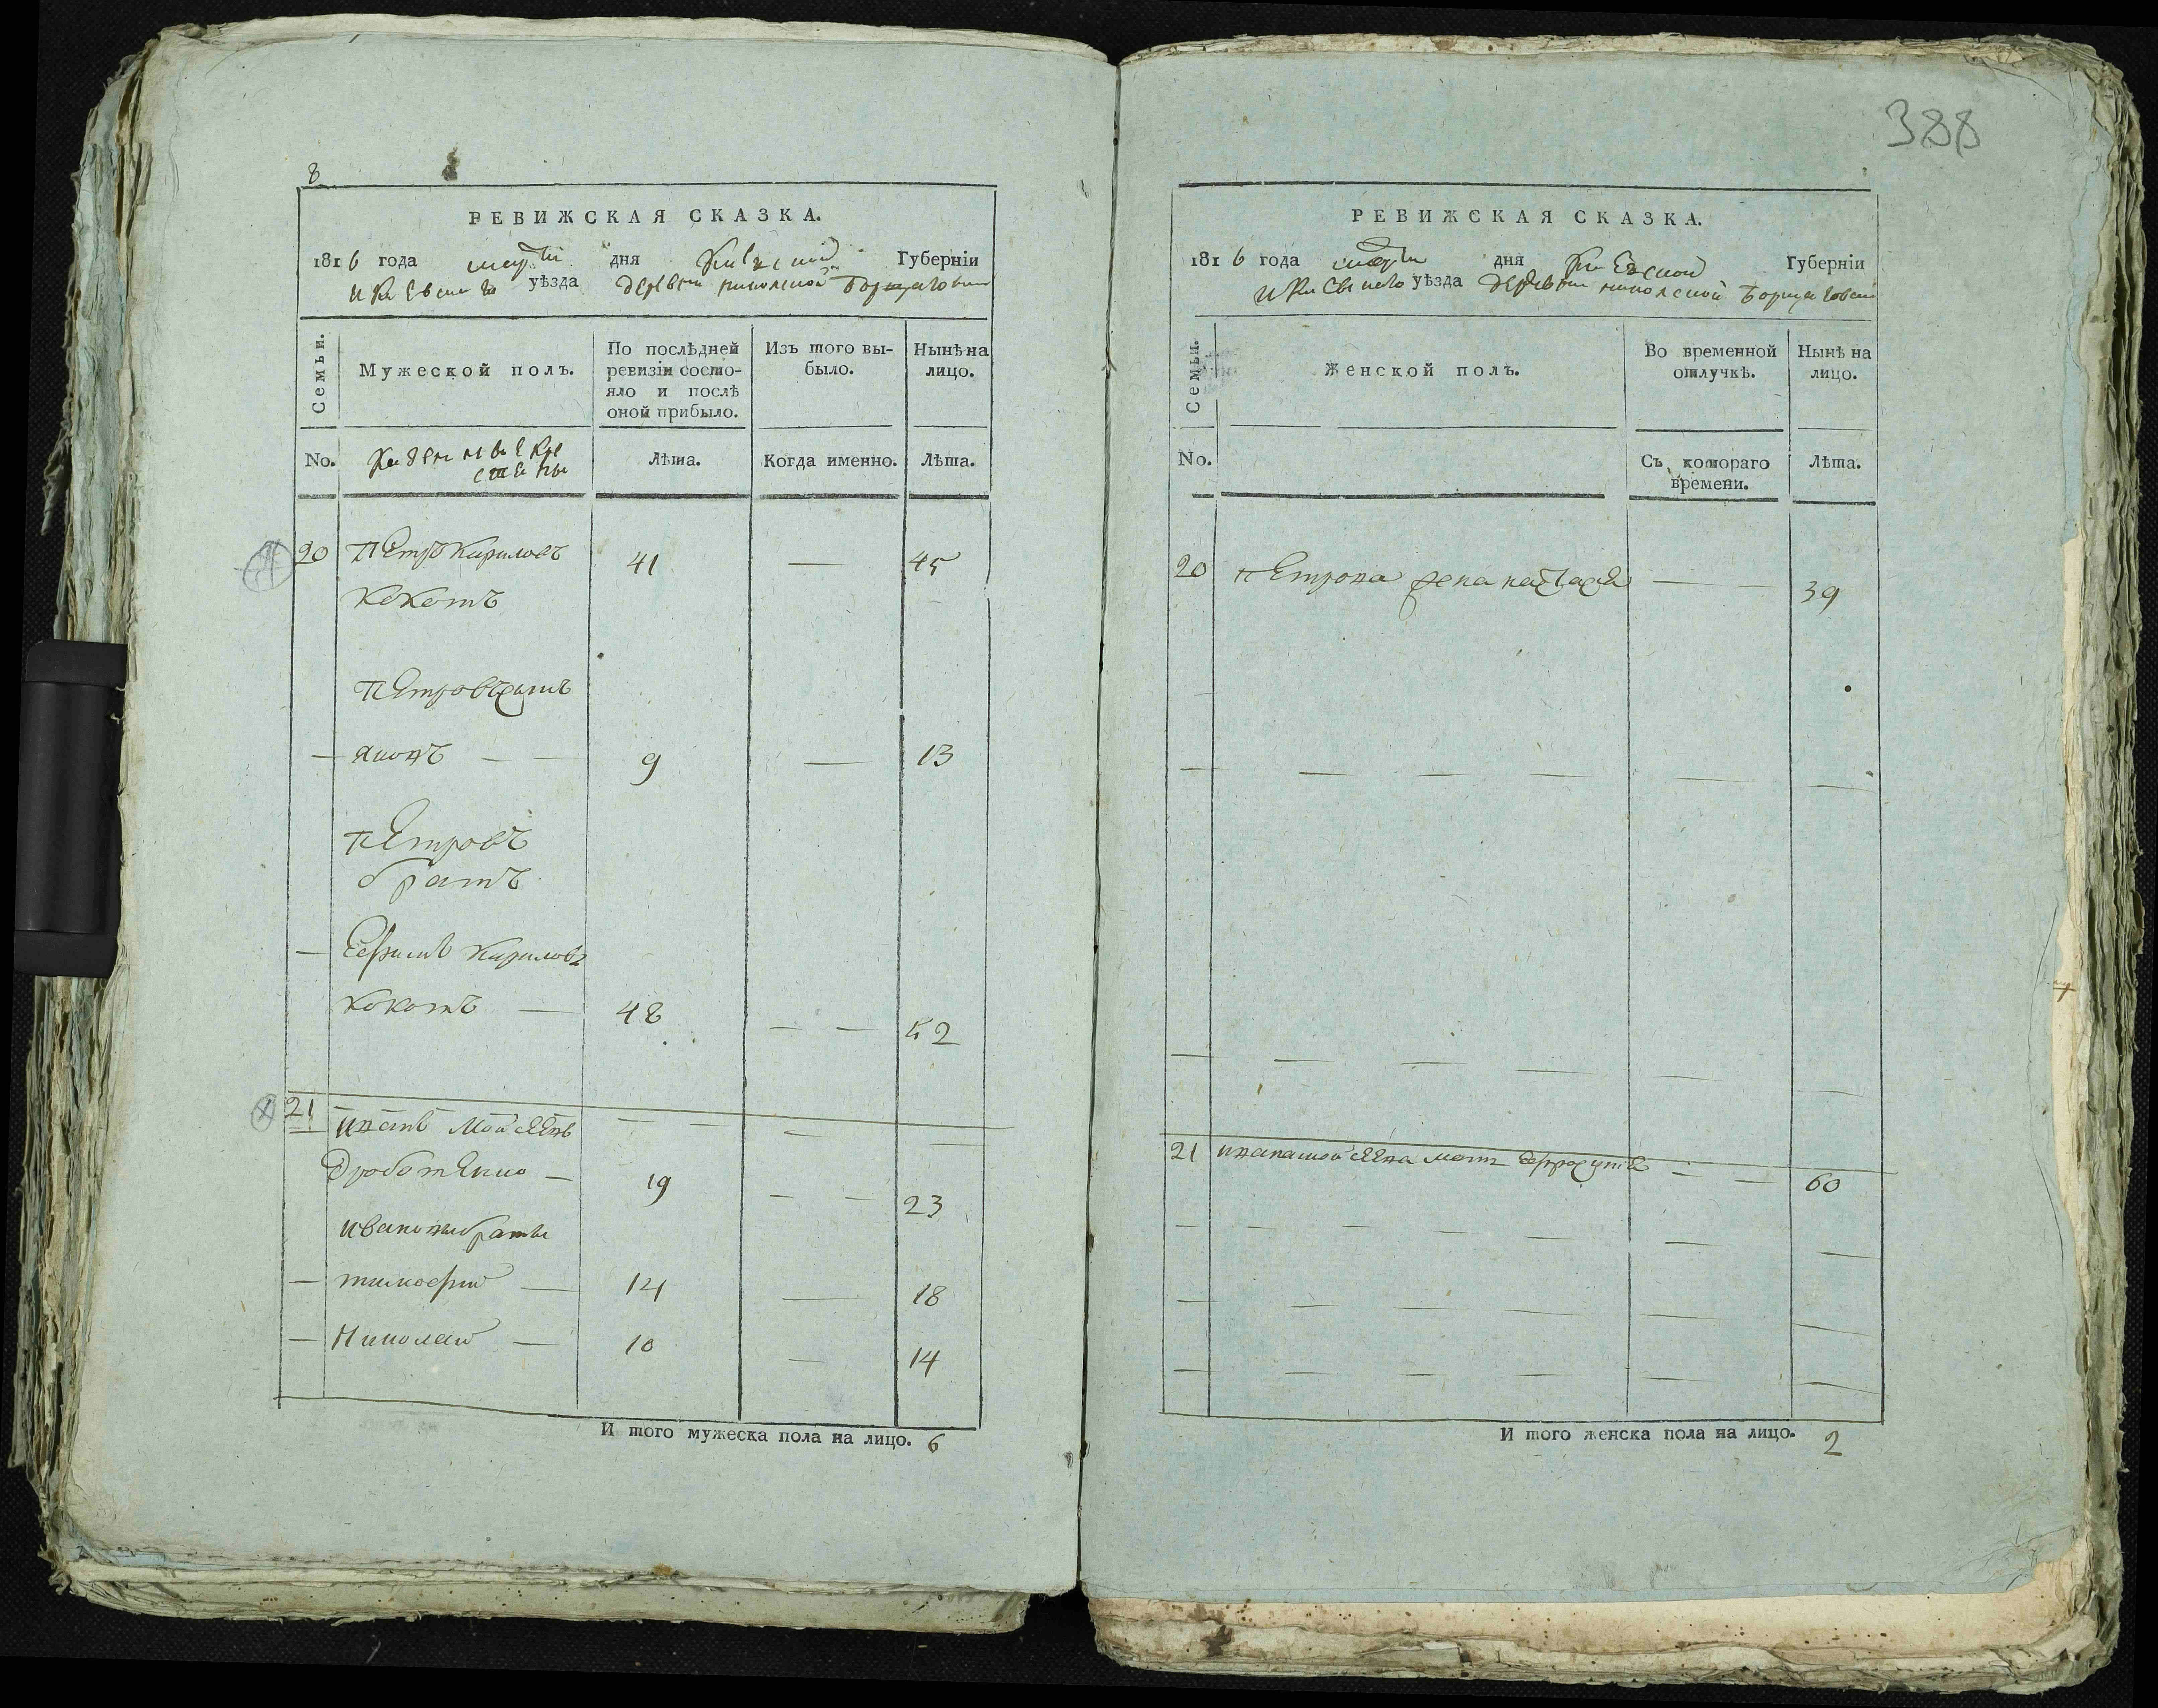 8
РЕВИЖСКАЯ СКАЗКА.
1816 года марта дня Киевской Губерніи
и Киевскаго уѣзда деревни Николской Борщаговки
Семьи.
Мужеской полъ.
По послѣдней ревизіи состояло и послѣ оной прибыло.
Изъ того выбыло.
Нынѣ на лицо.
No.
Казенные крестьяны
Лѣта.
Когда именно.
Лѣта.
20 Петръ Кириловъ 41 — 45
Кокотъ
Петровъ сынъ
— — — 9 — 13
Петровъ
братъ
— Ефимъ Кириловъ
Кокотъ — 48 — — 52
21 Иванъ Мойсеевъ — — — —
Дроботенко — 19 — — 23
Ивановы братья
— Тимофей — 14 — 18
— Николай — 10 — 14
И того мужеска пола на лицо. 6
388
РЕВИЖСКАЯ СКАЗКА.
1816 года марта дня Киевской Губерніи
и Киевскаго уѣзда деревни Николской Борщаговки
Семьи.
Женской полъ.
Во временной отлучкѣ.
Нынѣ на лицо.
No.
Съ котораго времени.
Лѣта.
20 Петрова жена — 39
21 Ивана Мойсеева мать — — 60
И того женска пола на лицо. 2